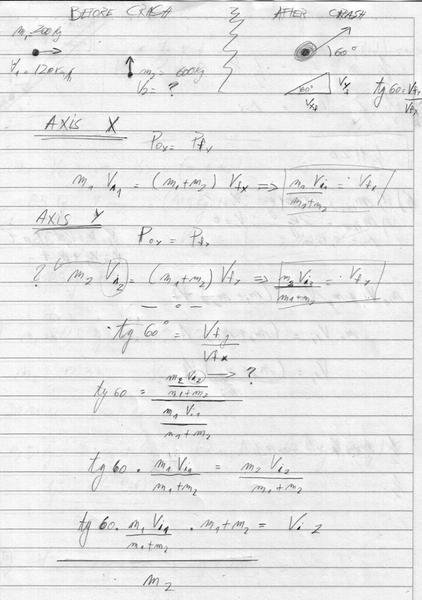 BEFORE CRASH AFTER CRASH
m₁ 200 kg
V₁ = 120 Km/h
m₂ = 600 kg
V₂ = ?
60°
60° Vfy
Vfx
tg 60 = Vfy/Vfx
AXIS X
Pox = Pfx
m₁ Vi₁ = (m₁+m₂) Vfx ⇒ m₁ Vi₁/m₁+m₂ = Vfx
AXIS Y
Pox = Pfx
? m₂ Vi₂ = (m₁+m₂) Vfy ⇒ m₂ Vi₂/m₁+m₂ = Vfy
— o —
tg 60° = Vfy/Vfx
tg 60 = m₂ Vi₂/m₁+m₂ / m₁ Vi₁/m₁+m₂ → ?
tg 60 · m₁ Vi₁/m₁+m₂ = m₂ Vi₂/m₁+m₂
tg 60 · m₁ Vi₁/m₁+m₂ · m₁+m₂ = Vi 2
m₂